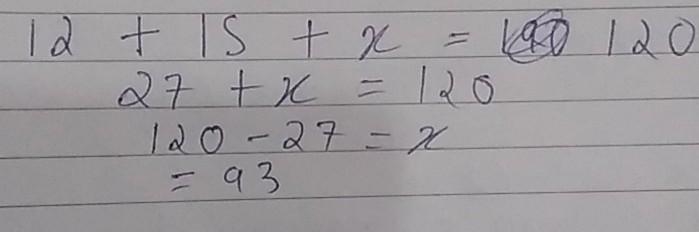 12 + 15 + x = 120
27 + x = 120
120 - 27 = x
= 93